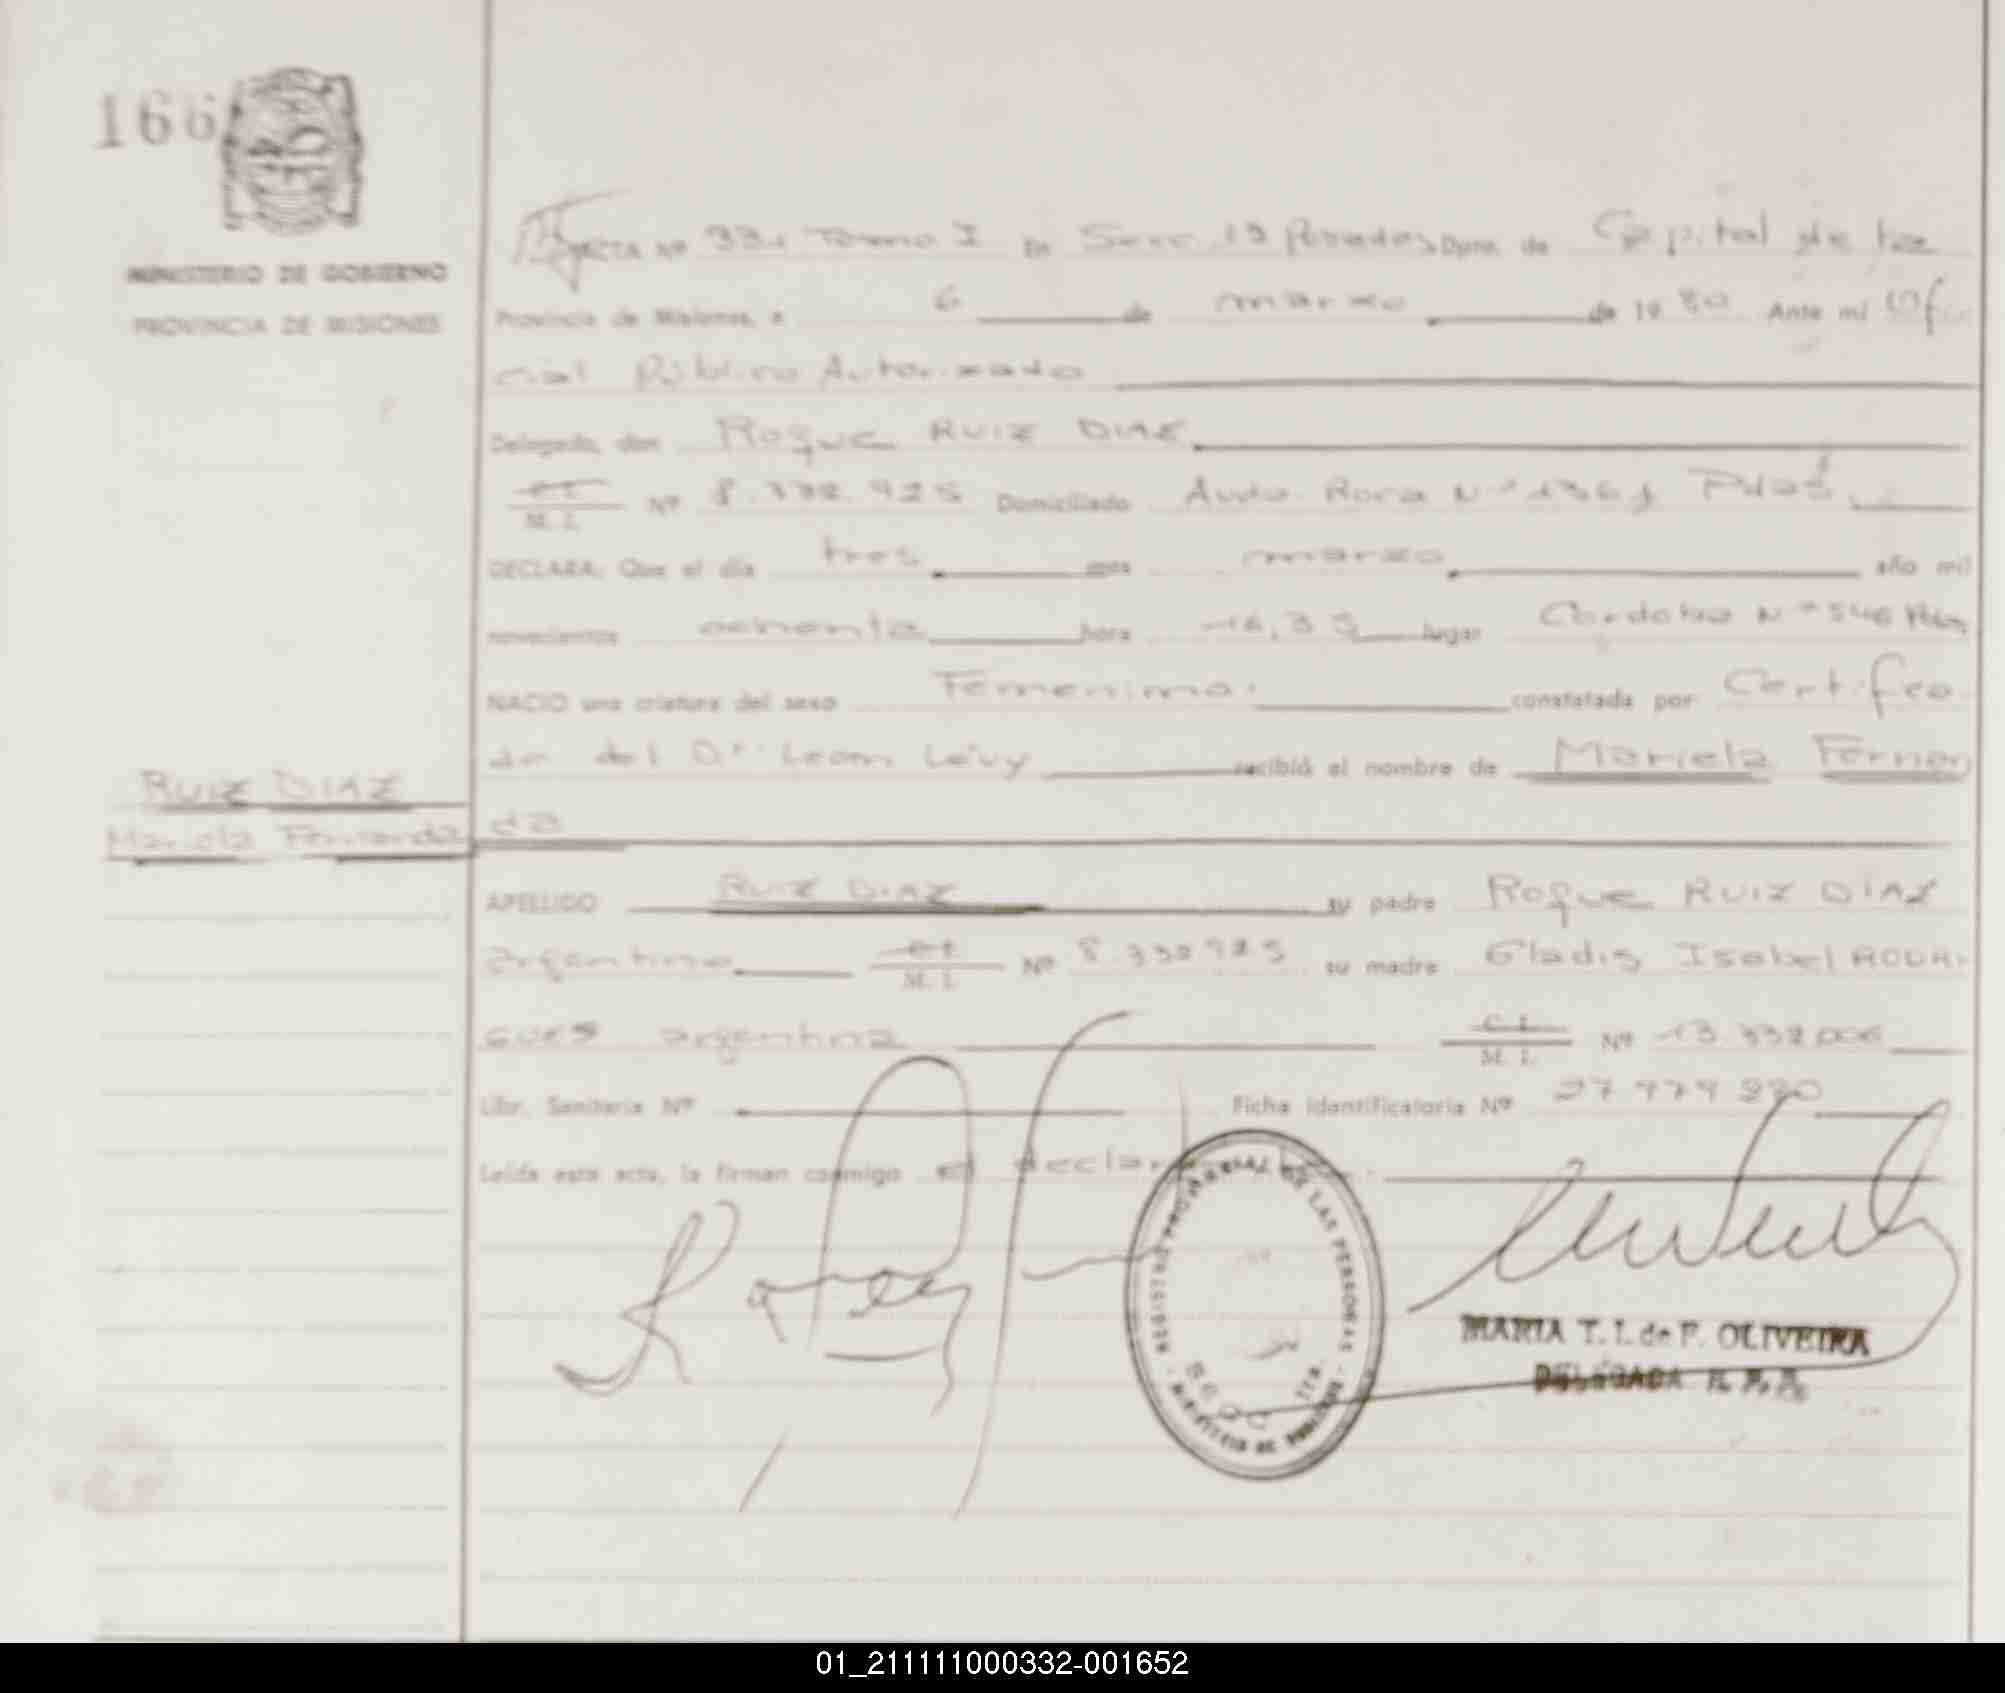 166
MINISTERIO DE GOBIERNO
PROVINCIA DE MISIONES
ACTA Nº 331 Tomo I En Secc 1ª Posadas, Dpto. de Capital de la
Provincia de Misiones, a 6 de marzo de 1980 Ante mí Ofi
cial Público Autorizado
Delegado, don Roque RUIZ DIAZ
M. I. Nº Domiciliado Avda. Roca Nº Pdas
DECLARA: Que el día tres mes marzo año mil
novecientos ochenta hora 16,35 lugar Cordoba Nº 546 Pdas
NACIO una criatura del sexo Femenino. constatada por Certifca
do del Dr. Leon Lévy recibió el nombre de Mariela Fernan
da
RUIZ DIAZ
Mariela Fernanda
APELLIDO RUIZ DIAZ su padre Roque RUIZ DIAZ
argentino M. I. Nº su madre Gladis Isabel RODRI
GUES argentina C. I. M. I. Nº 13.332.006
Libr. Sanitaria Nº Ficha Identificatoria Nº
Leída esta acta, la firman conmigo el declarante.
REGISTRO PROVINCIAL DE LAS PERSONAS - MINISTERIO DE GOBIERNO -
SECC 1ra.
MARIA T. I. de F. OLIVEIRA
DELEGADA R. P. P.
01_211111000332-001652